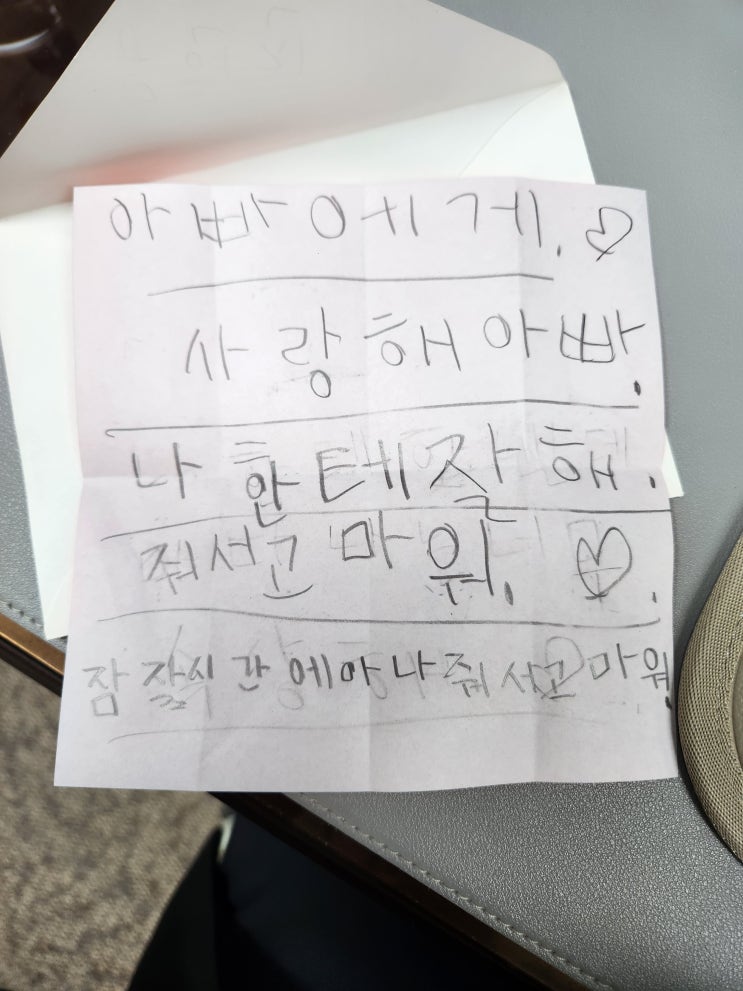 아빠에게. ♡
사랑해 아빠.
나한테 잘해.
줘서 고마워. ♡.
잠잘시간에 아나줘서 고마워